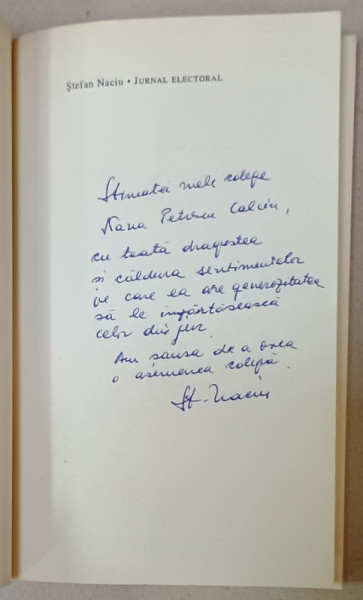 Ștefan Naciu • JURNAL ELECTORAL
Stimatei mele colege
Nana Petrescu Calciu,
cu toată dragostea
și căldura sentimentelor
pe care ea are generozitatea
să le împărtășească
celor din jur.
Am șansa de a avea
o asemenea colegă.
Șt. Naciu